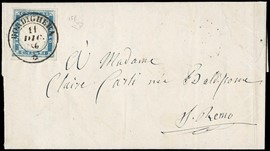 BORDIGHERA
11
DIC.
56
à Madame
Claire Carli née
S. Remo